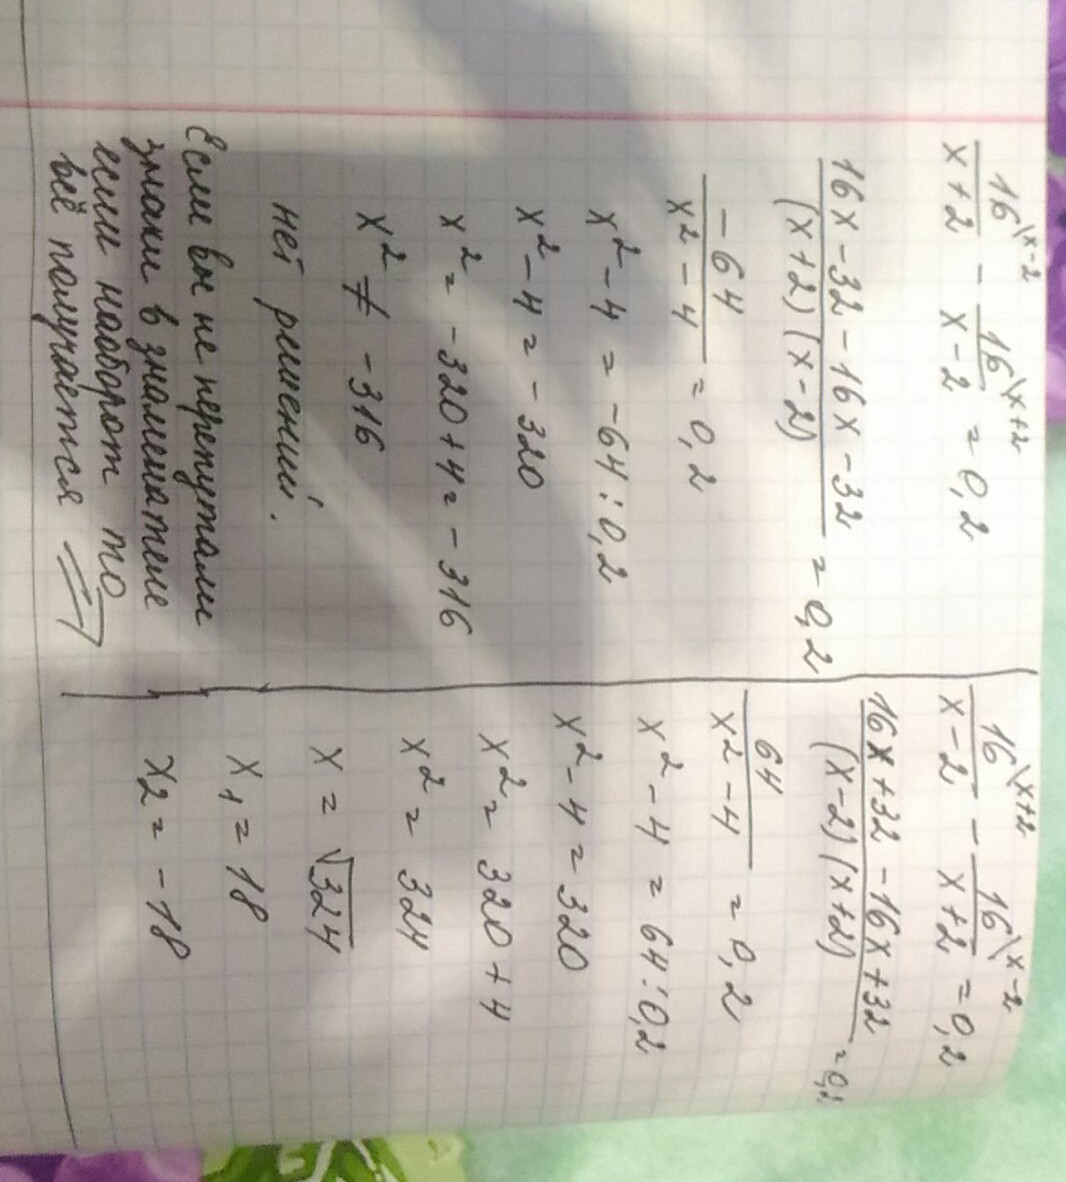 16\x-2 / x+2 - 16\x+2 / x-2 = 0,2
16x-32-16x-32 / (x+2)(x-2) = 0,2
-64 / x²-4 = 0,2
x²-4 = -64:0,2
x²-4 = -320
x² = -320+4 = -316
x² ≠ -316
нет решений.
Если вы не перепутали
знаки в знаменателе
если наоборот то
всё получается ⇒
16\x+2 / x-2 - 16\x-2 / x+2 = 0,2
16x+32-16x+32 / (x-2)(x+2) = 0,2
64 / x²-4 = 0,2
x²-4 = 64:0,2
x²-4 = 320
x² = 320+4
x² = 324
x = √324
x1 = 18
x2 = -18